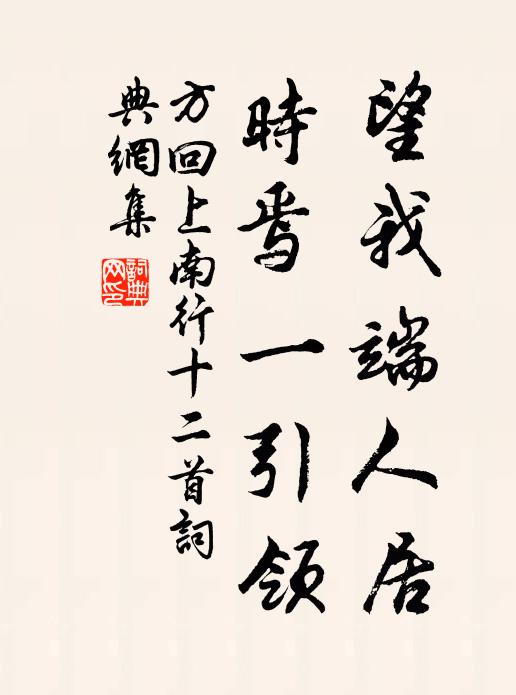 望我端人居
時焉一引領
方回上南行十二首詞
典網集
詞典
网印